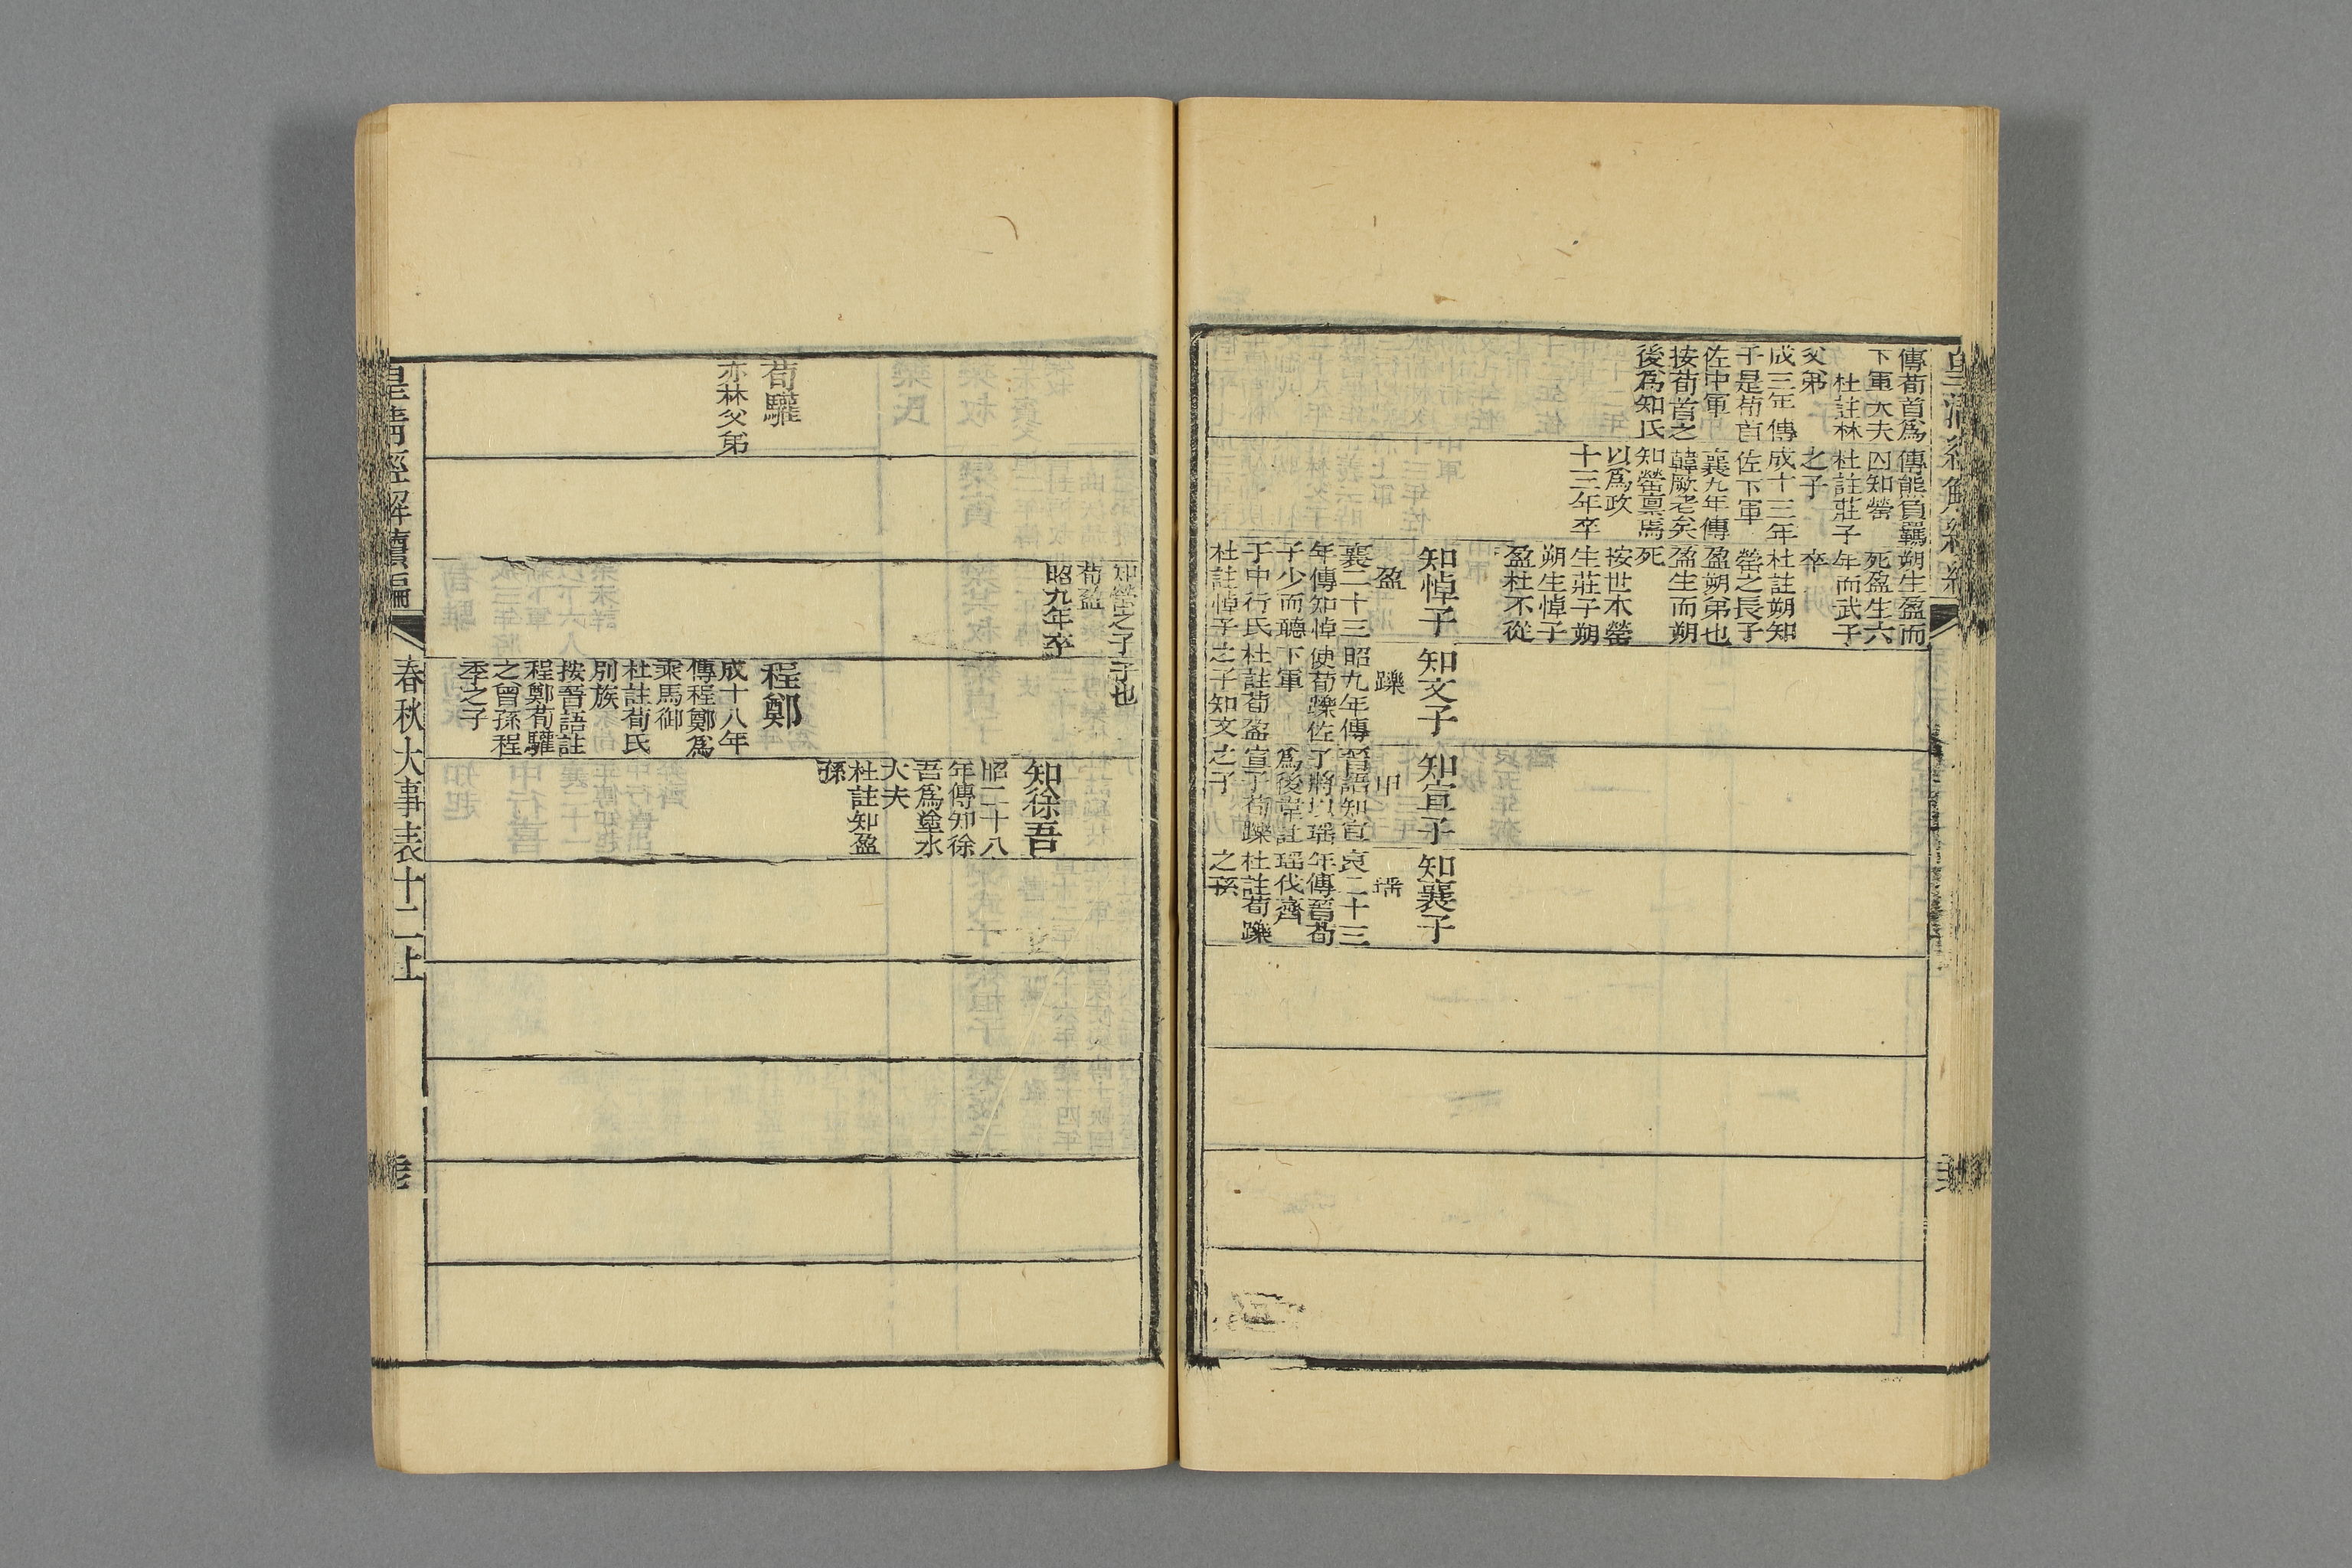 傳荀首爲
下軍大夫
杜註林
父弟
成三年傳
于是荀首
佐中軍
按荀首之
後爲知氏
傳熊負羈
囚知罃
杜註莊子
之子
成十三年
佐下軍
襄九年傳
韓厥老矣
知罃禀焉
以爲政
十三年卒
朔生盈而
死盈生六
年而武子
卒
杜註朔知
罃之長子
盈朔弟也
盈生而朔
死
按世本罃
生莊子朔
朔生悼子
盈杜不從
知悼子
盈
襄二十三
年傳知悼
子少而聽
于中行氏
杜註悼子
知文子
躒
昭九年傳
使荀躒佐
下軍
杜註荀盈
之子知文
知宣子
甲
晉語知宣
子將以瑶
爲後韋註
宣子荀躒
之子
知襄子
瑶
哀二十三
年傳晉荀
瑶伐齊
杜註荀躒
之孫
荀騅
亦林父弟
知罃之子
荀盈
昭九年卒
子也
程鄭
成十八年
傳程鄭爲
乘馬御
杜註荀氏
別族
按晉語註
程鄭荀騅
之曾孫程
季之子
知徐吾
昭二十八
年傳知徐
吾爲塗水
大夫
杜註知盈
孫
皇清經解續編
春秋大事表十二上